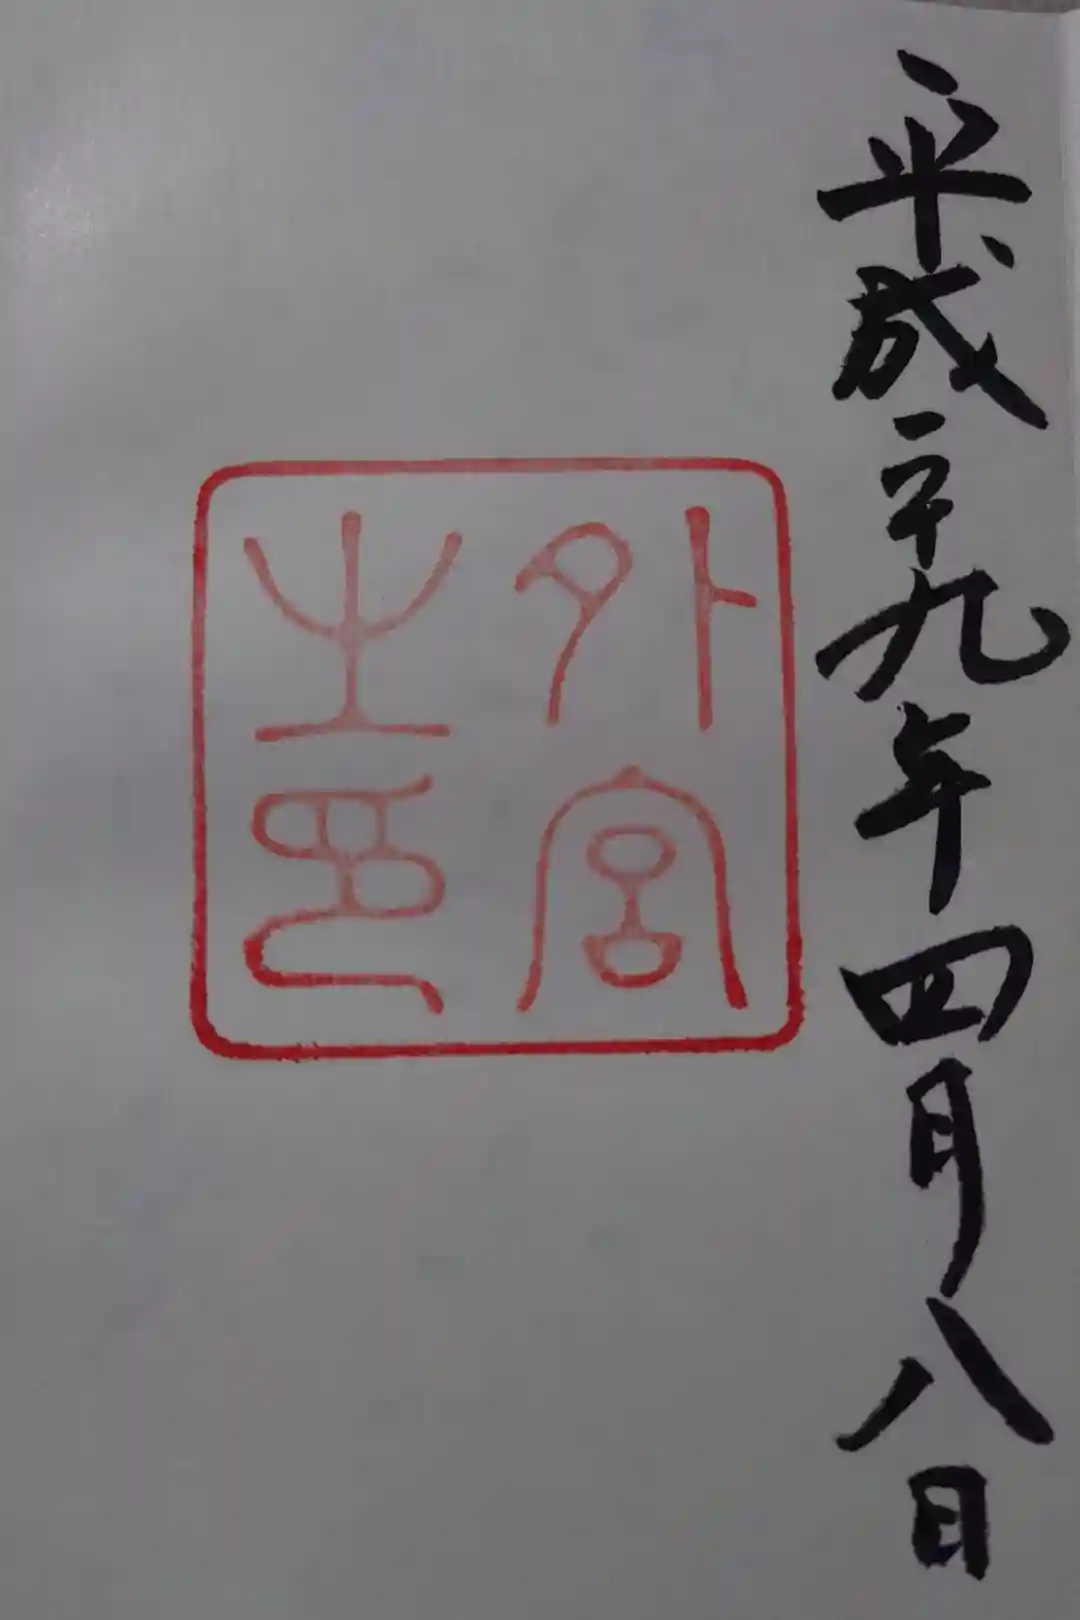 平成二十九年四月八日
外宮
之印